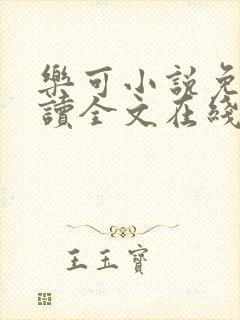 樂可小說免
讀全文在綫
王玉寶